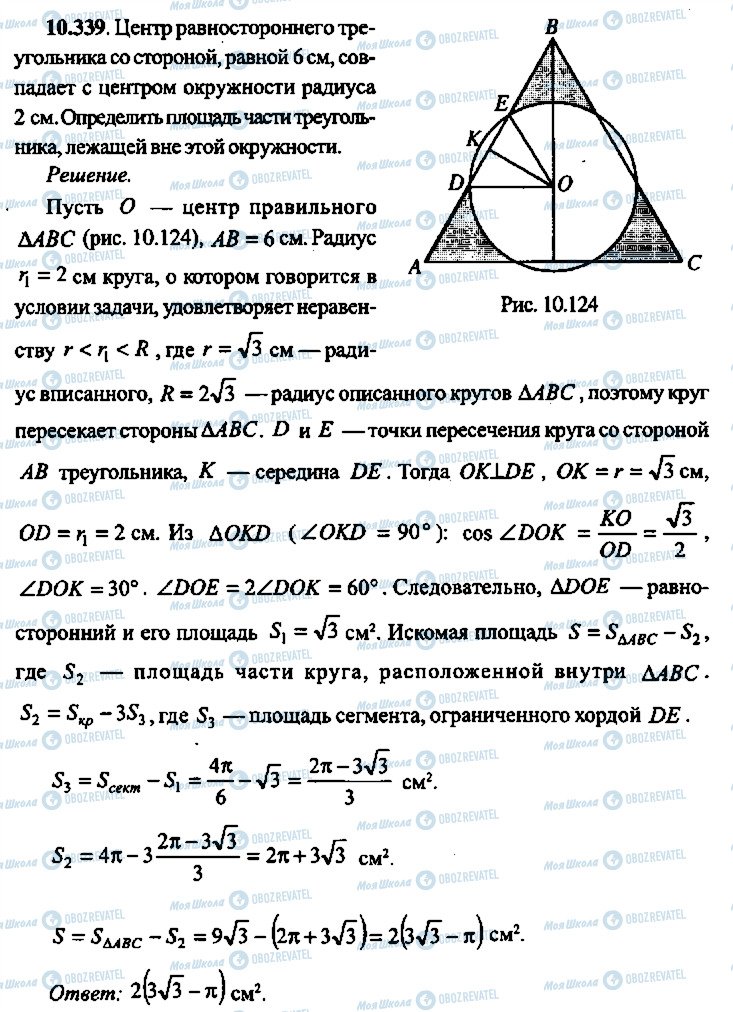 10.339. Центр равностороннего тре-
угольника со стороной, равной 6 см, сов-
падает с центром окружности радиуса
2 см. Определить площадь части треуголь-
ника, лежащей вне этой окружности.
Решение.
Пусть O — центр правильного
ΔABC (рис. 10.124), AB = 6 см. Радиус
r₁ = 2 см круга, о котором говорится в
условии задачи, удовлетворяет неравен-
ству r < r₁ < R, где r = √3 см — ради-
B
E
K
D
O
A
C
Рис. 10.124
ус вписанного, R = 2√3 — радиус описанного кругов ΔABC, поэтому круг
пересекает стороны ΔABC. D и E — точки пересечения круга со стороной
AB треугольника, K — середина DE. Тогда OK⊥DE, OK = r = √3 см,
OD = r₁ = 2 см. Из ΔOKD (∠OKD = 90°): cos ∠DOK = KO/OD = √3/2,
∠DOK = 30°. ∠DOE = 2∠DOK = 60°. Следовательно, ΔDOE — равно-
сторонний и его площадь S₁ = √3 см². Искомая площадь S = S_ΔABC − S₂,
где S₂ — площадь части круга, расположенной внутри ΔABC.
S₂ = Sкр − 3S₃, где S₃ — площадь сегмента, ограниченного хордой DE.
S₃ = Sсект − S₁ = 4π/6 − √3 = (2π − 3√3)/3 см².
S₂ = 4π − 3 (2π − 3√3)/3 = 2π + 3√3 см².
S = S_ΔABC − S₂ = 9√3 − (2π + 3√3) = 2(3√3 − π) см².
Ответ: 2(3√3 − π) см².
МояШкола OBOZREVATEL